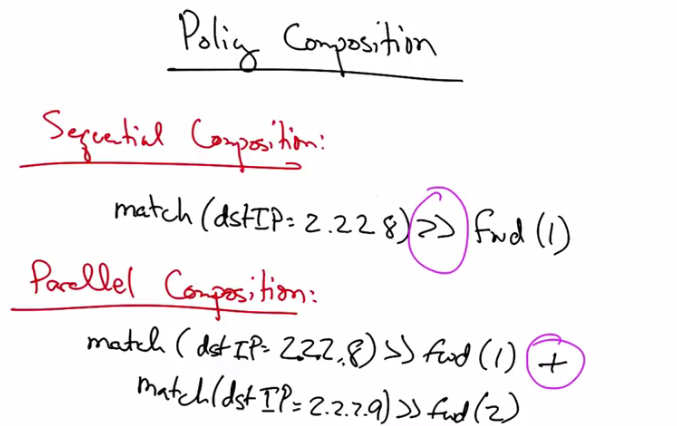 Policy Composition
Sequential Composition:
match (dstIP = 2.2.2 8) >> fwd (1)
Parallel Composition:
match (dstIP = 2.2.2.8) >> fwd (1) +
match (dstIP = 2.2.2.9) >> fwd (2)